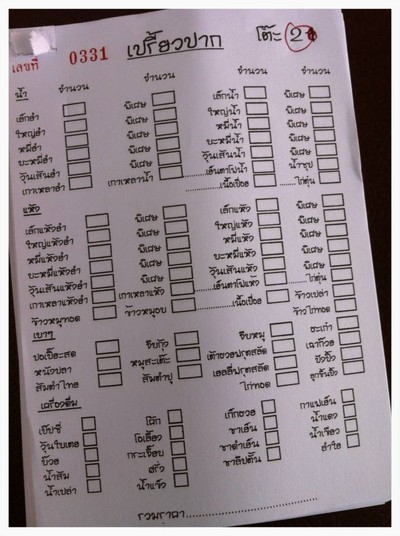 เลขที่ 0331 เปรี้ยวปาก โต๊ะ 2
น้ำ จำนวน จำนวน จำนวน จำนวน
เล็กยำ พิเศษ เล็กน้ำ พิเศษ
ใหญ่ยำ พิเศษ ใหญ่น้ำ พิเศษ
หมี่ยำ พิเศษ หมี่น้ำ พิเศษ
บะหมี่ยำ พิเศษ บะหมี่น้ำ พิเศษ
วุ้นเส้นยำ พิเศษ วุ้นเส้นน้ำ น้ำซุป
เกาเหลายำ เกาเหลาน้ำ ..........เย็นตาโฟน้ำ
..........เนื้อเปื่อย ..........ไก่ตุ๋น
แห้ง
เล็กแห้งยำ พิเศษ เล็กแห้ง พิเศษ
ใหญ่แห้งยำ พิเศษ ใหญ่แห้ง พิเศษ
หมี่แห้งยำ พิเศษ หมี่แห้ง พิเศษ
บะหมี่แห้งยำ พิเศษ บะหมี่แห้ง พิเศษ
วุ้นเส้นแห้งยำ พิเศษ วุ้นเส้นแห้ง พิเศษ
เกาเหลาแห้งยำ เกาเหลาแห้ง ..........เย็นตาโฟแห้ง ..........ไก่ตุ๋น
ข้าวหมูทอด ข้าวหมูอบ ..........เนื้อเปื่อย ข้าวเปล่า
ข้าวไก่ทอด
เบาๆ
ปอเปี๊ยะสด จีบกุ้ง จีบหมู ตะเก่า
หนังปลา หมูสะเต๊ะ เต้าฮวยฟรุตสลัด เฉาก๊วย
ส้มตำไทย ส้มตำปู เยลลี่ฟรุตสลัด ปังปิ้ง
ไก่ทอด ลูกชิ้นปิ้ง
เครื่องดื่ม
เป๊ปซี่ โค้ก เก๊กฮวย กาแฟเย็น
วุ้นใบเตย โอเลี้ยง ชาเย็น น้ำแดง
บ๊วย กระเจี๊ยบ ชาดำเย็น น้ำเขียว
น้ำส้ม ชาลิปตัน ลำไย
น้ำเปล่า น้ำแข็ง
รวมราคา..............................